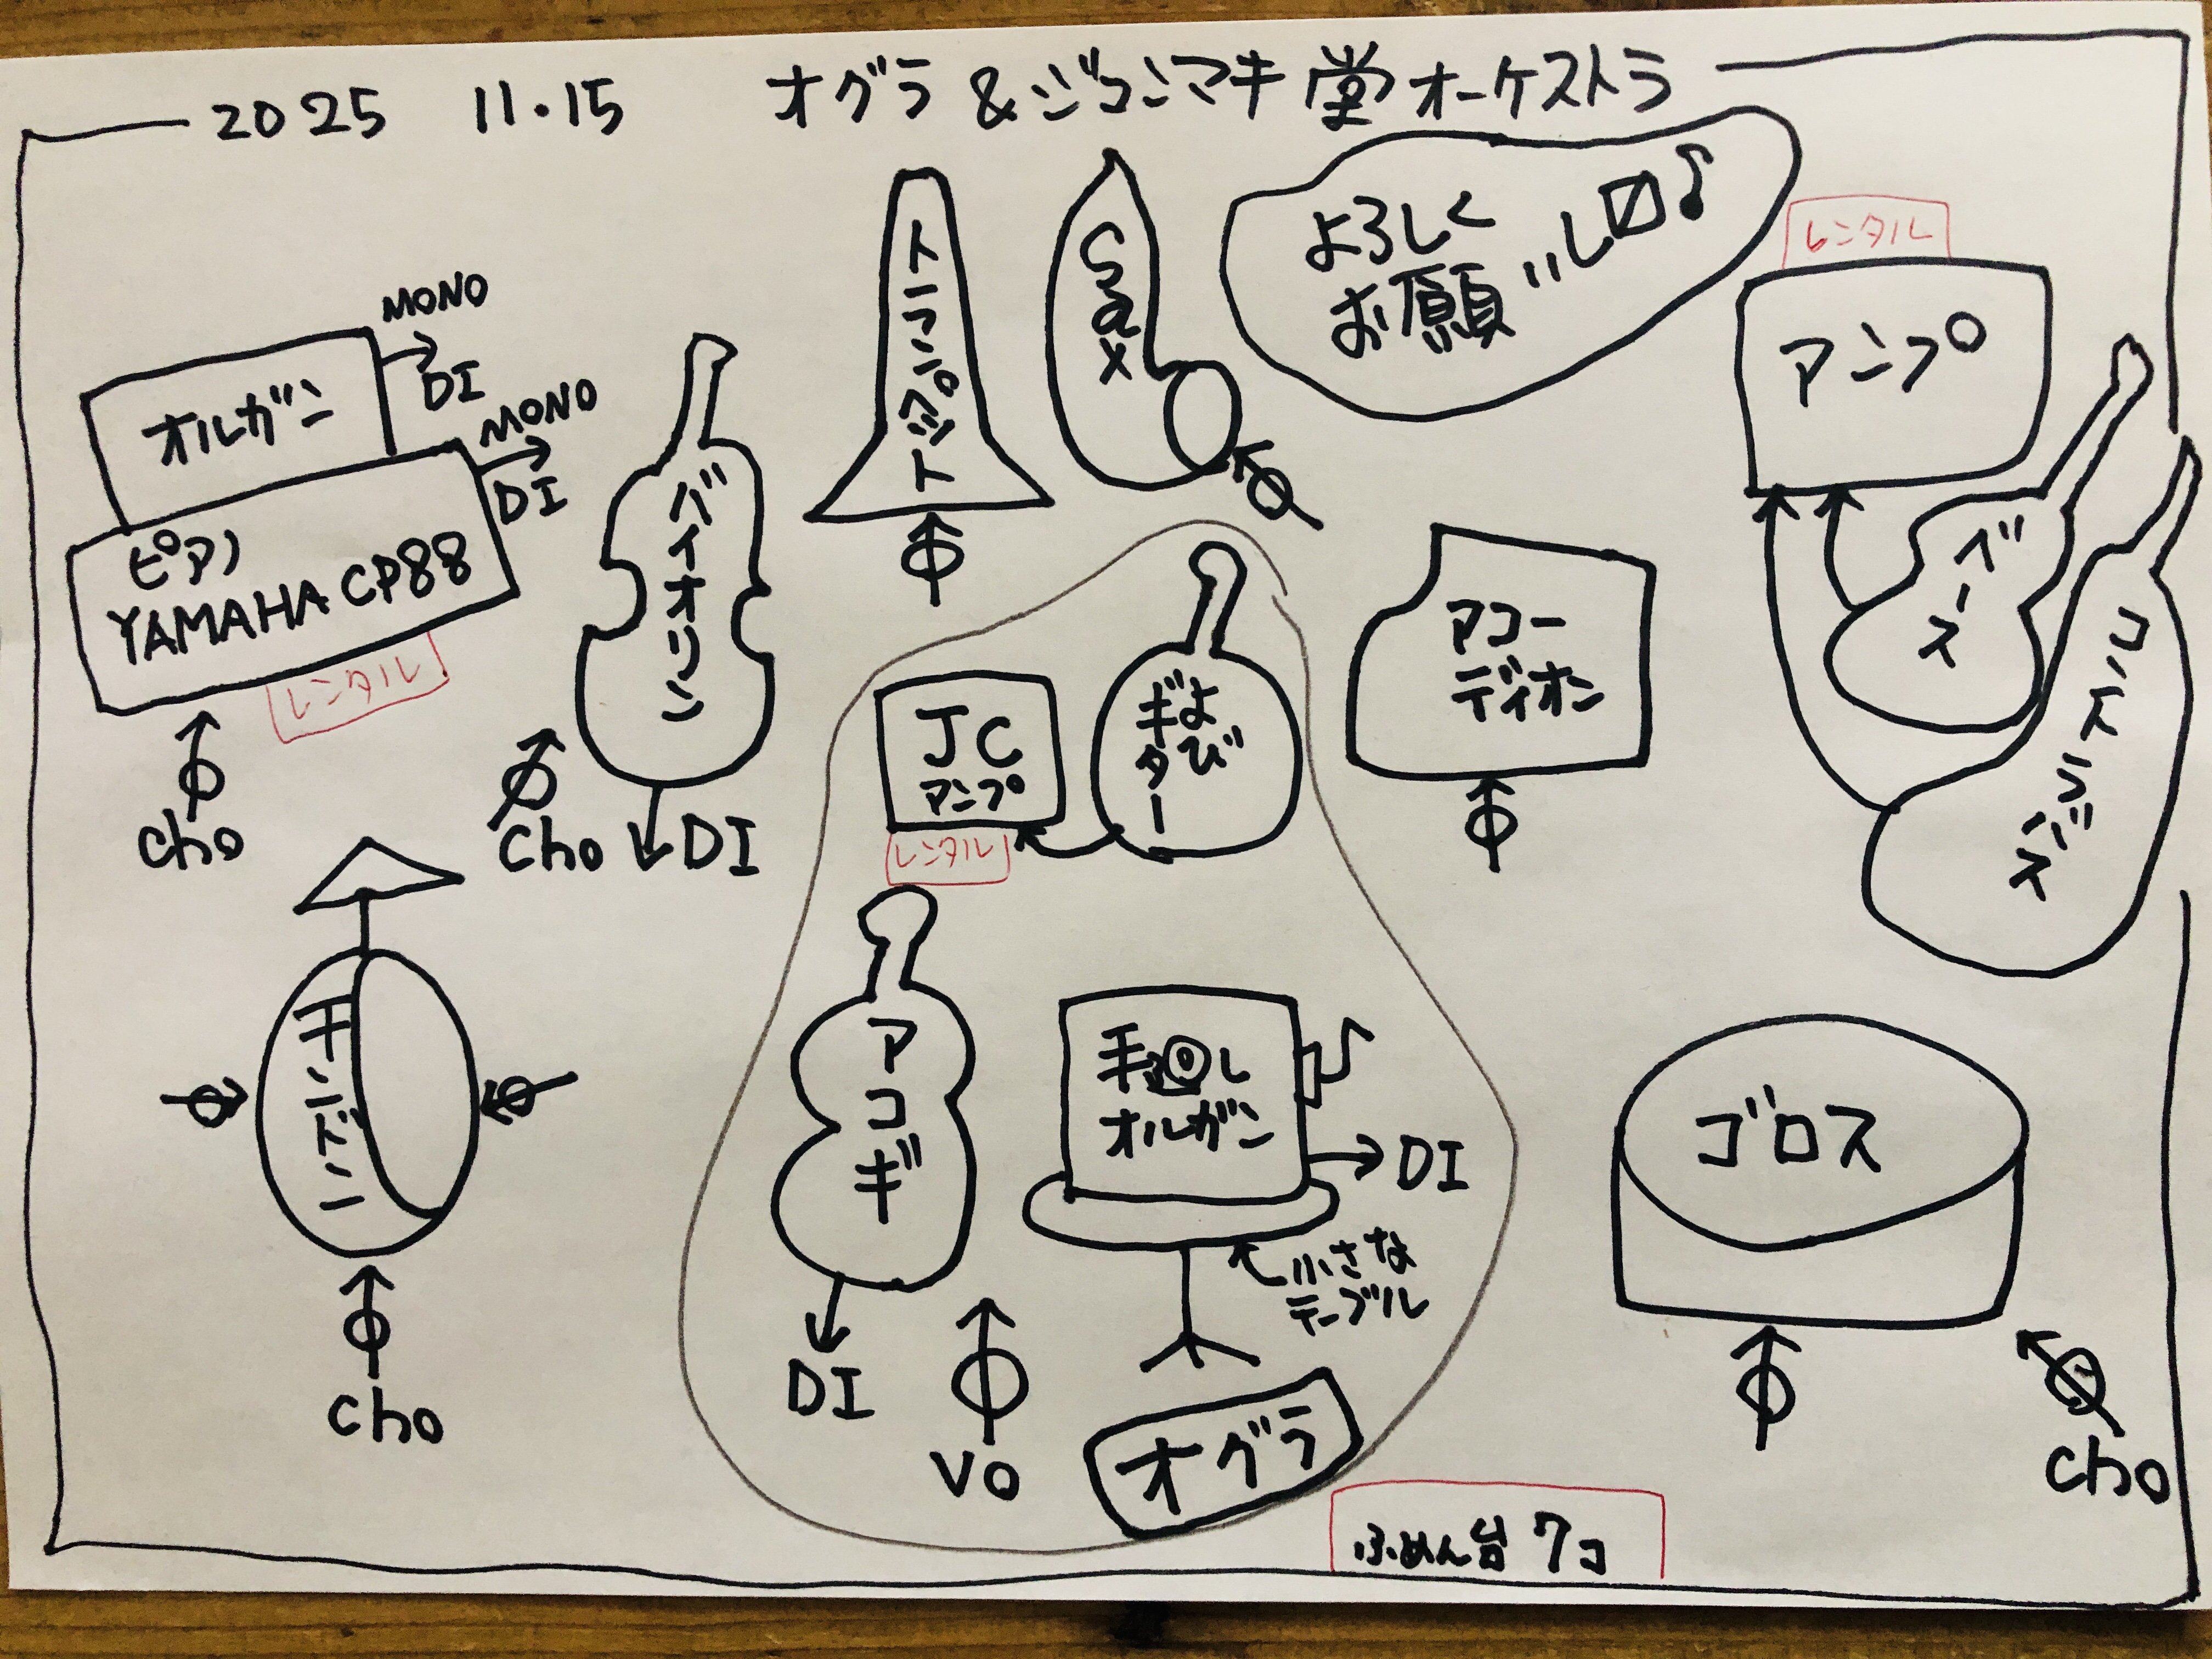 2025 11.15 オグラ&ジコンマキ堂オーケストラ
よろしく
お願いし〼♪
レンタル
アンプ
ベース
コントラバス
MONO
DI
オルガン
MONO
DI
ピアノ
YAMAHA CP88
レンタル
cho
バイオリン
cho
DI
トランペット
Sax
JC
アンプ
レンタル
よび
ギター
アコーディオン
チンドン
cho
アコギ
DI
手回し
オルガン
DI
小さな
テーブル
VO
オグラ
ゴロス
cho
ふめん台 7コ